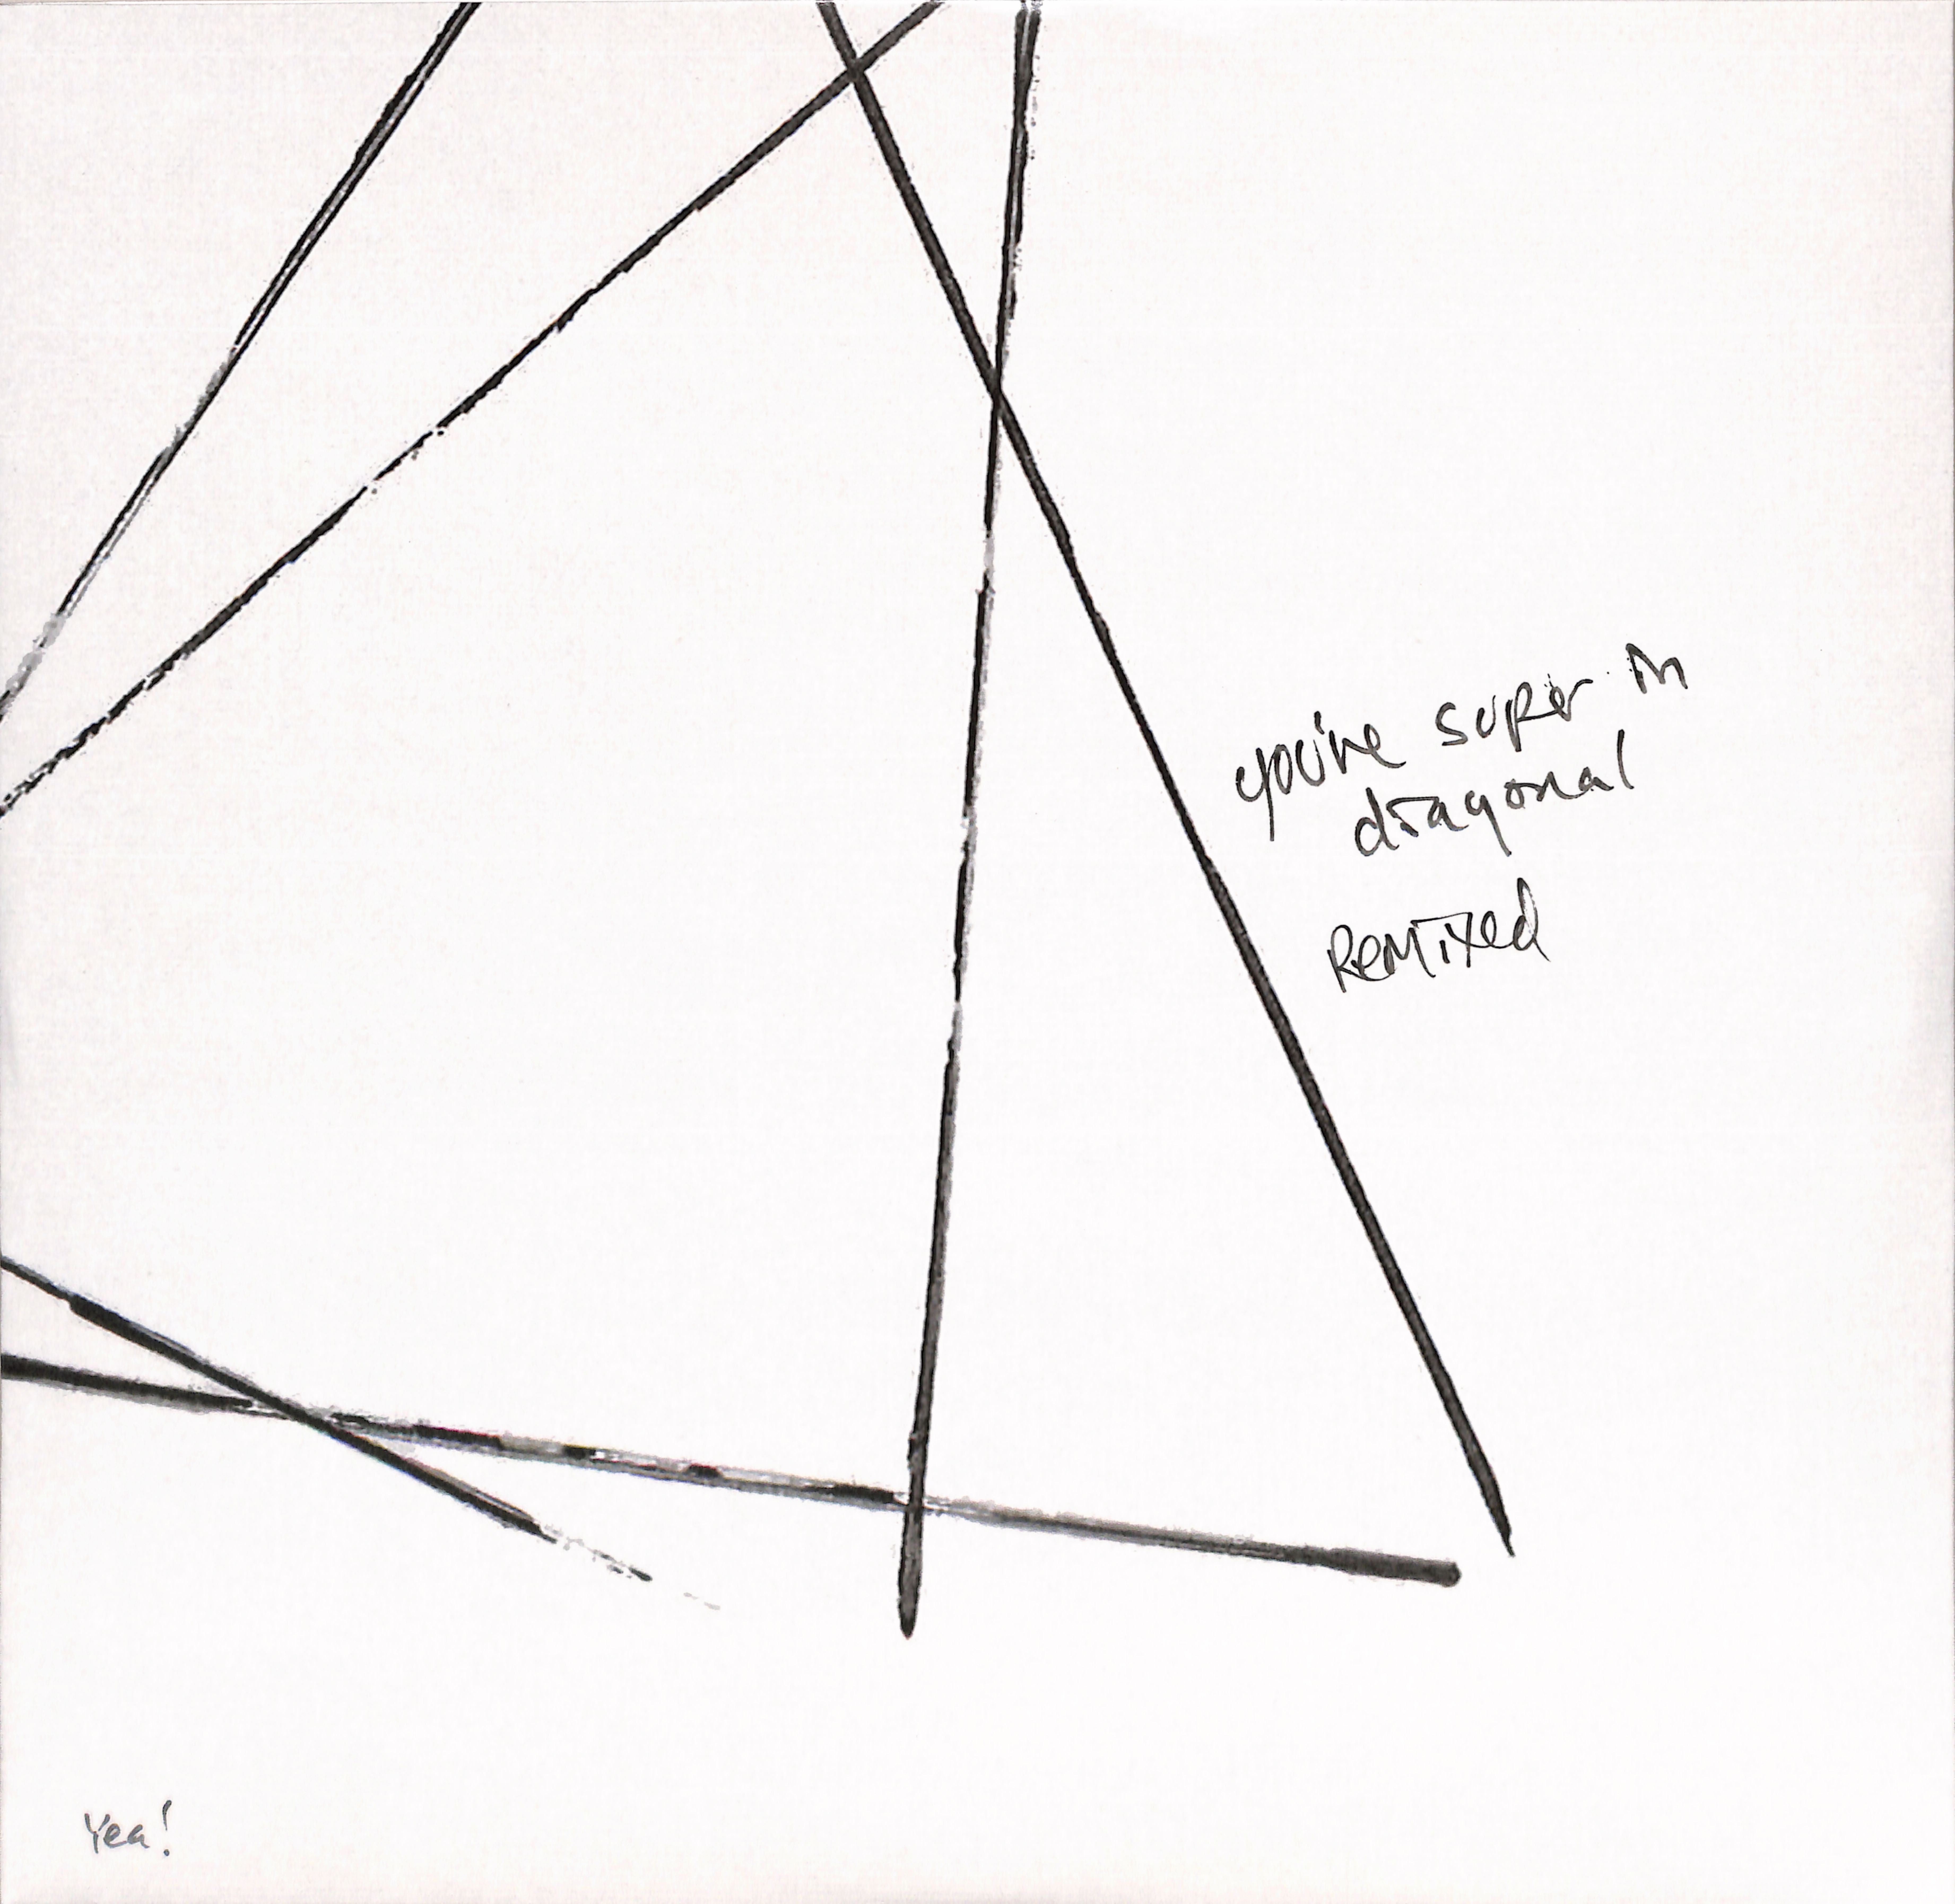 you're super in
diagonal
Remixed
Yea!